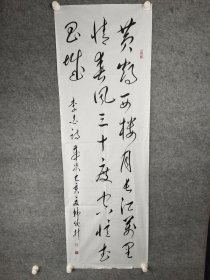 黄鹤西楼月长江万里
情春风三十度空忆武
昌城
李白诗